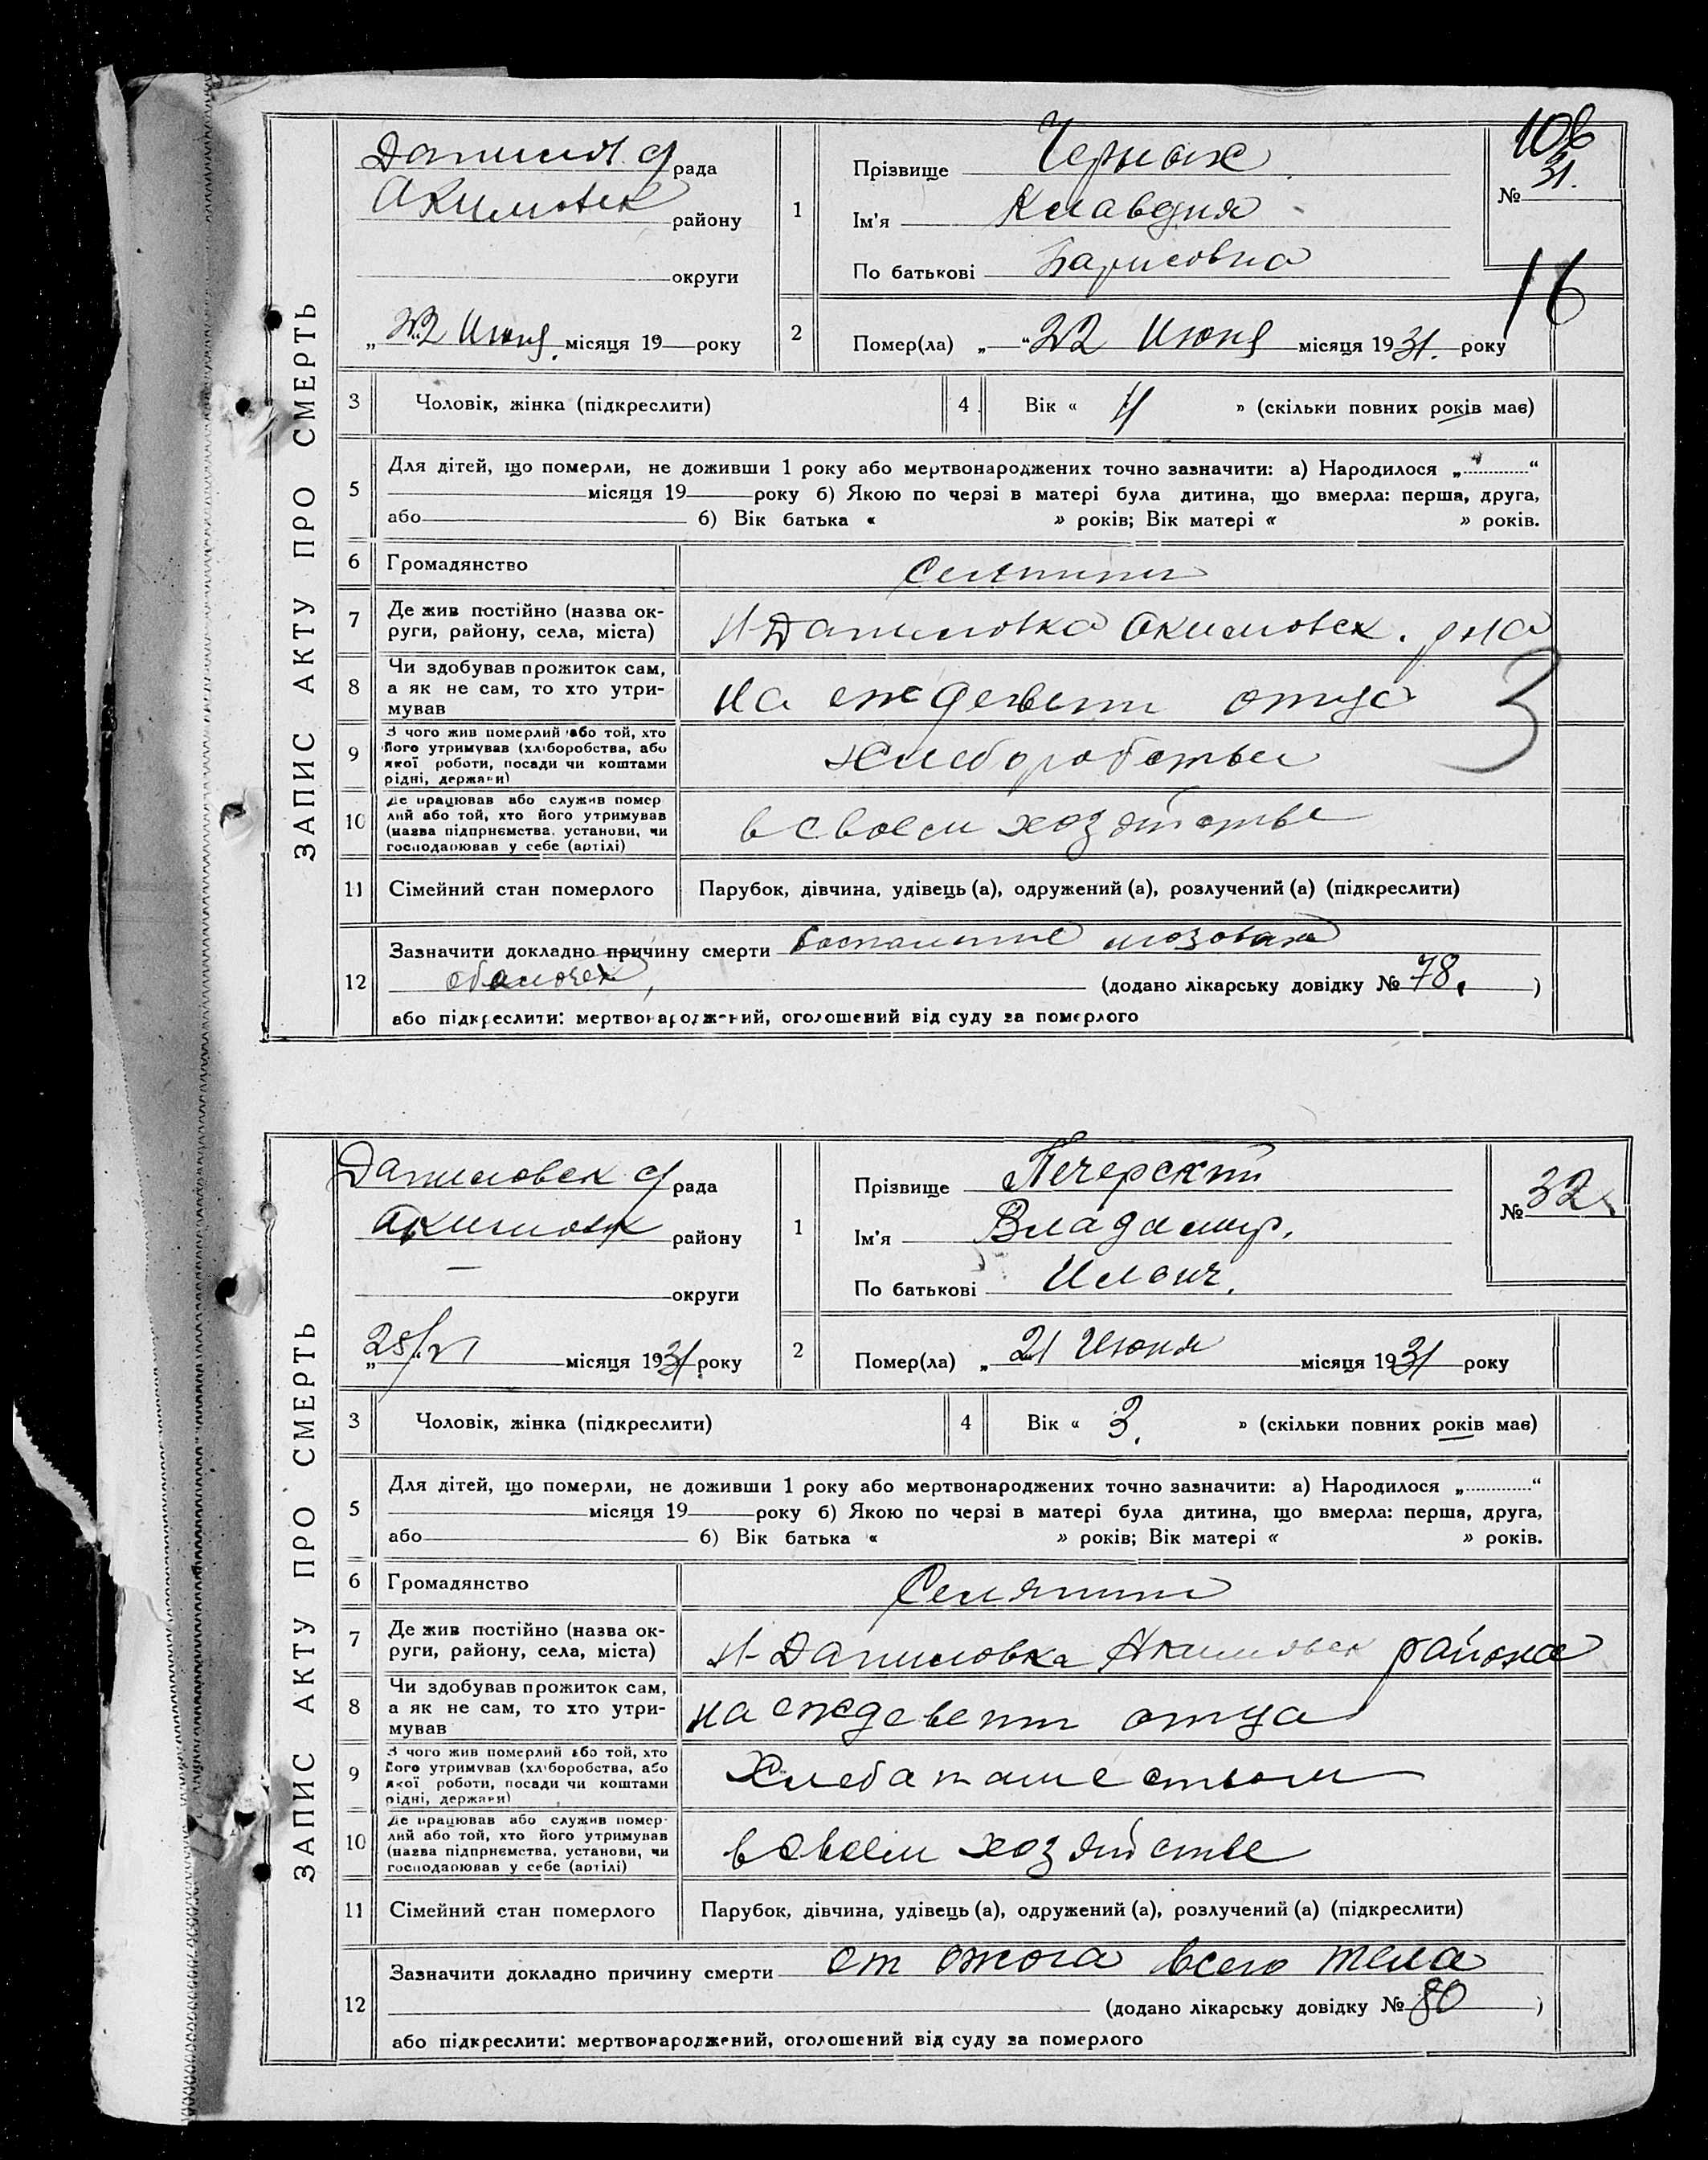 ЗАПИС АКТУ ПРО СМЕРТЬ
рада
Акимовск району
округи
„22 Июня місяця 19 року
1
Прізвище Черных
Ім'я Клавдия
По батькові Барисовна
106
№ 31.
16
2
Помер(ла) „22 Июня місяця 1931. року
3 Чоловік, жінка (підкреслити)
4 Вік « » (скільки повних років має)
5 Для дітей, що померли, не доживши 1 року або мертвонароджених точно зазначити: а) Народилося „..........“
місяця 19 року б) Якою по черзі в матері була дитина, що вмерла: перша, друга,
або б) Вік батька « » років; Вік матері « » років.
6 Громадянство Селянин
7 Де жив постійно (назва ок-
руги, району, села, міста)
Н-Даниловка Акимовск. р-на
8 Чи здобував прожиток сам,
а як не сам, то хто утри-
мував
на еждевени отца
3
9 З чого жив померлий або той, хто
його утримував (хліборобства, або
якої роботи, посади чи коштами
рідні, держави)
10 Де працював або служив помер
лий або той, хто його утримував
(назва підприємства, установи, чи
господарював у себе (артілі)
в своем хозяйстве
11 Сімейний стан померлого Парубок, дівчина, удівець (а), одружений (а), розлучений (а) (підкреслити)
12 Зазначити докладно причину смерти Воспаление мозовых
оболочек, (додано лікарську довідку № 78. )
або підкреслити: мертвонароджений, оголошений від суду за померлого
ЗАПИС АКТУ ПРО СМЕРТЬ
Даниловск с/рада
Акимовск району
— округи
„25/VI місяця 1931 року
1
Прізвище Печерский
Ім'я Владимир.
По батькові Ильич.
№ 32
2
Помер(ла) „21 Июня місяця 1931 року
3 Чоловік, жінка (підкреслити)
4 Вік « 3. » (скільки повних років має)
5 Для дітей, що померли, не доживши 1 року або мертвонароджених точно зазначити: а) Народилося „..........“
місяця 19 року б) Якою по черзі в матері була дитина, що вмерла: перша, друга,
або б) Вік батька « » років; Вік матері « » років.
6 Громадянство Селянин
7 Де жив постійно (назва ок-
руги, району, села, міста)
Н-Даниловка Акимовск района
8 Чи здобував прожиток сам,
а як не сам, то хто утри-
мував
на еждевени отца
9 З чого жив померлий або той, хто
його утримував (хліборобства, або
якої роботи, посади чи коштами
рідні, держави)
Хлебапашеством
10 Де працював або служив помер-
лий або той, хто його утримував
(назва підприємства, установи, чи
господарював у себе (артілі)
в своем хозяйстве
11 Сімейний стан померлого Парубок, дівчина, удівець (а), одружений (а), розлучений (а) (підкреслити)
12 Зазначити докладно причину смерти от ожога всего тела
(додано лікарську довідку № 80 )
або підкреслити: мертвонароджений, оголошений від суду за померлого